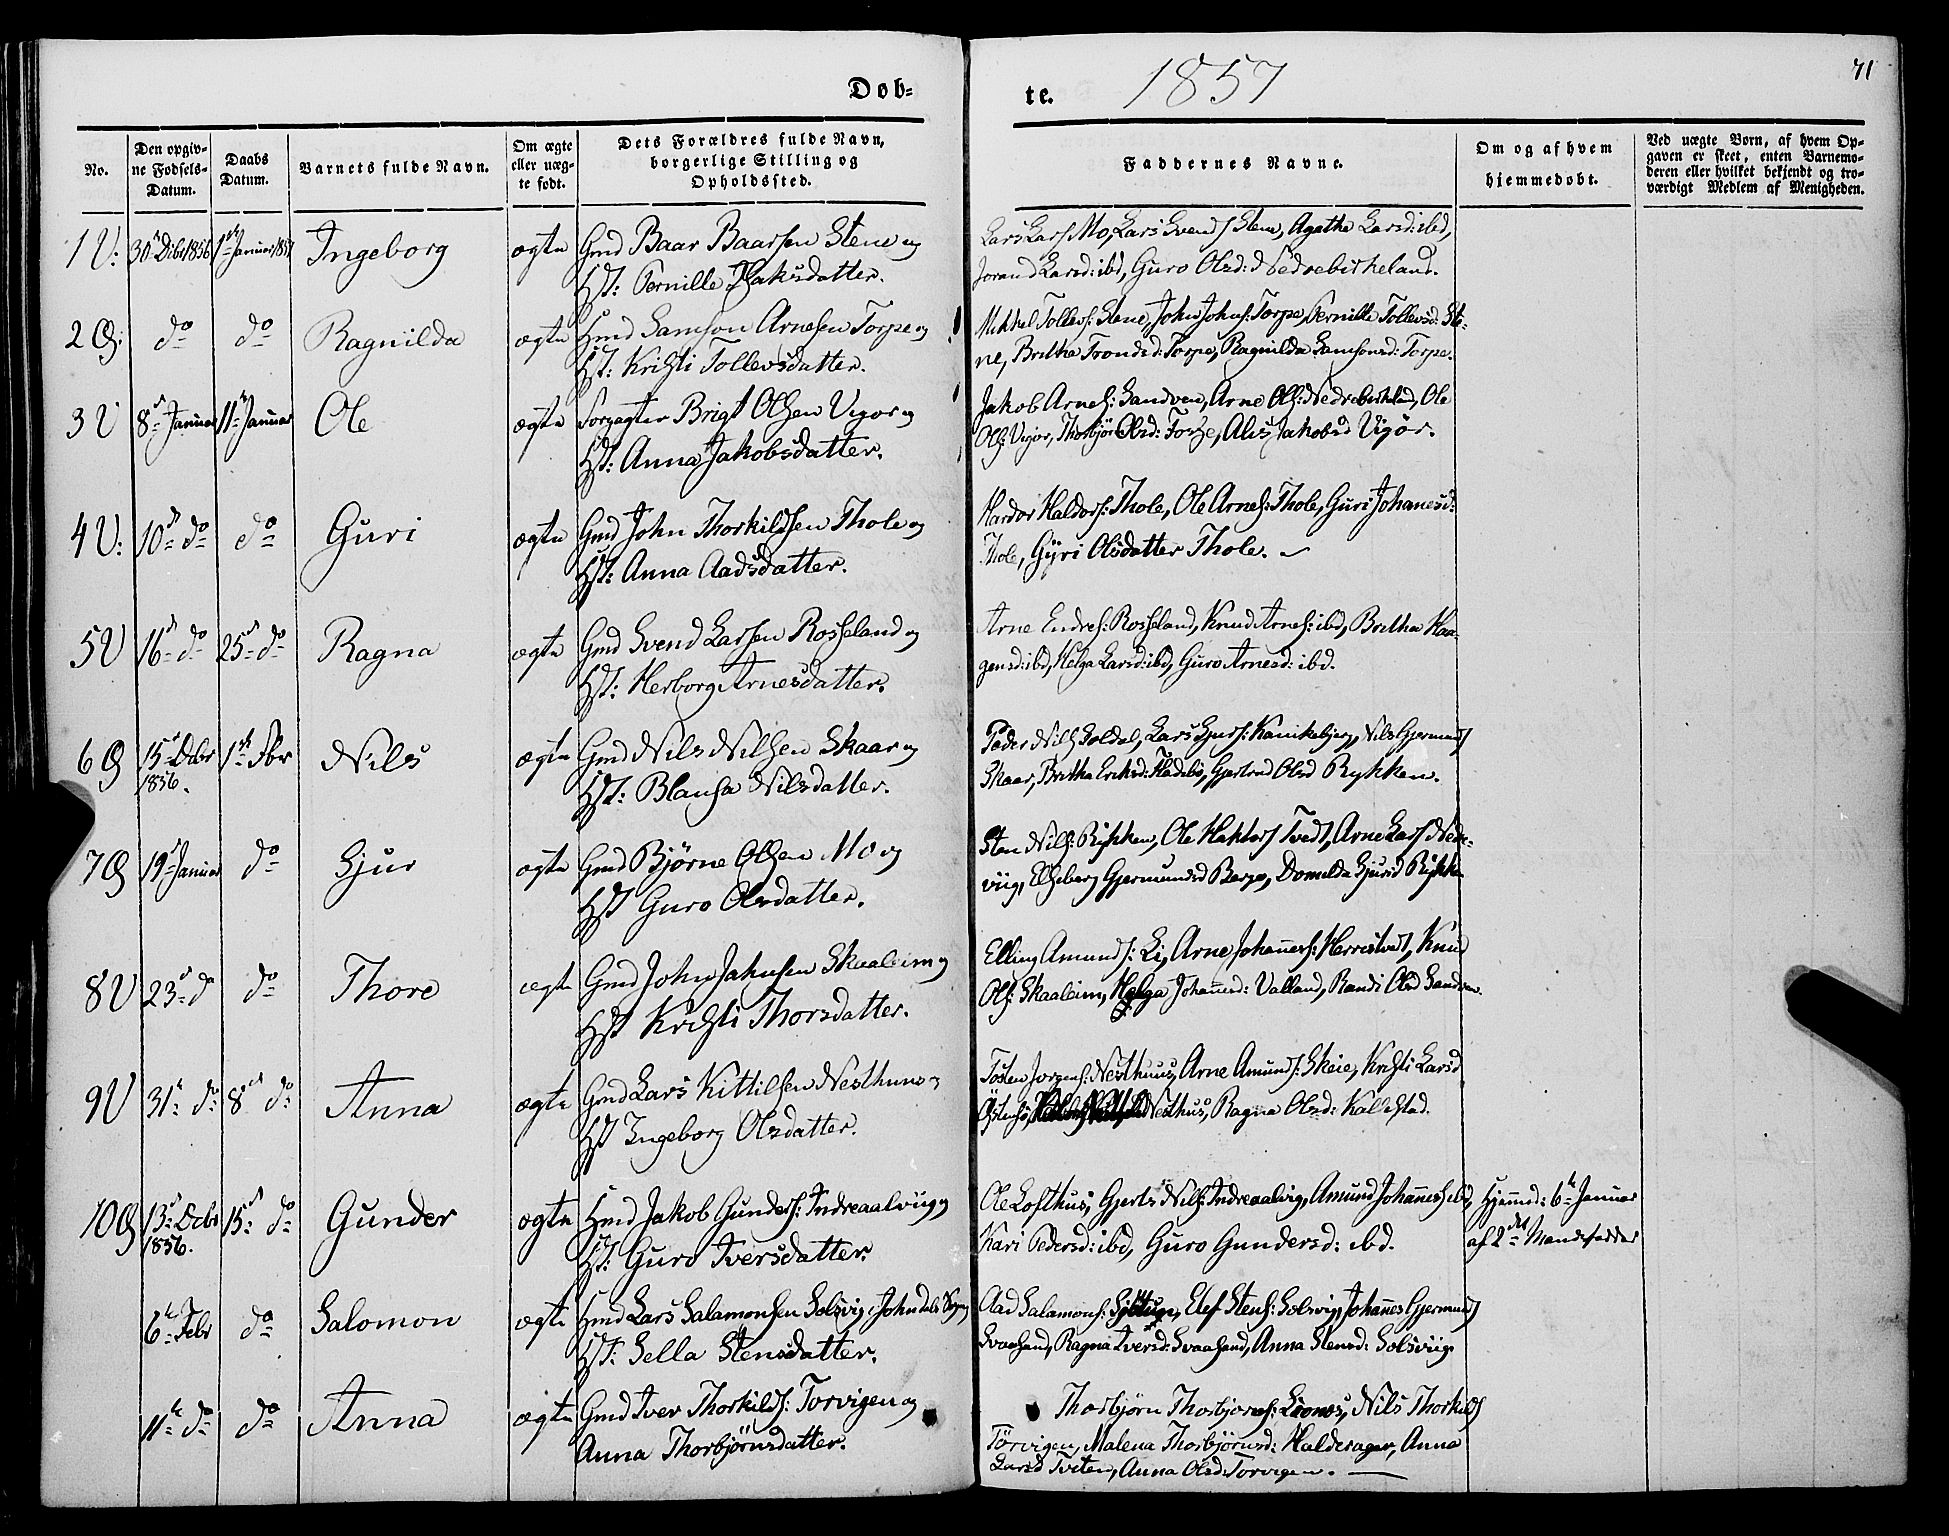 Døb-
te. 1857
71
No.
Den opgiv-
ne Fødsels-
Datum.
Daabs
Datum.
Barnets fulde Navn.
Om ægte
eller uæg-
te født.
Dets Forældres fulde Navn,
borgerlige Stilling og
Opholdssted.
Faddernes Navne.
Om og af hvem
hjemmedøbt.
Ved uægte Børn, af hvem Op-
gaven er skeet, enten Barnemo-
deren eller hvilket bekjendt og tro-
værdigt Medlem af Menigheden.
1 V: 30 Dcbr 1856 1ste Januar 1857 Ingeborg ægte Gmd Baar Baarsen Stene og
Hst: Pernille Isaksdatter.
Lars Lars Mo, Lars Svends Stene, Agatha Larsd: ibd,
Jorand Larsd: ibd, Guro Olsd: Nedrebirkeland.
2 G: do do Ragnilda ægte Hmd Samson Arnesen Torpe og
Hst: Kristi Tollevsdatter.
Mikkel Tollevs: Stene, John Johns: Torpe, Pernille Tollevsd: Ste-
ne, Britha Trondsd: Torpe, Ragnilda Samsonsd: Torpe.
3 V 8de Januar 11te Januar Ole ægte Forpagter Brigt Olsen Vigør og
Hst: Anna Jakobsdatter.
Jakob Arnes: Sandven, Arne Ols: Nedrebirkeland, Ole
Ols: Vigør, Thorbjør Olsd: Torpe, Alis Jakobsd Vigør.
4 V: 10de do do Guri ægte Gmd John Thorkildsen Thole og
Hst: Anna Aadsdatter.
Hardor Haldors: Thole, Ole Arnes: Thole, Guri Johanesd:
Thole, Gÿri Olsdatter Thole.
5 V 16de do 25de do Ragna ægte Gmd Svend Larsen Rosseland og
Hst: Herborg Arnesdatter.
Arne Endres: Rosseland, Knud Arnes: ibd, Britha Haa-
gensd: ibd, Helga Larsd: ibd, Guro Arnesd: ibd.
6 G 15de Dcbr 1ste Fbr Nils ægte Gmd Nils Nilsen Skaar og
1856.
Hst: Blansa Nilsdatter.
Peder Nils Soldal, Lars Sjurs: Kanikebjerg, Nils Gjermunds
Skaar, Britha Eriksd: Fladebø, Gjertrud Olsd Rykken.
7 G 19de Januar do Sjur ægte Gmd Bjørne Olsen Mo og
Hst Guro Olsdatter.
Sten Nils: Rykken, Ole Haktors Tvedt, Arne Lars Nedre-
viig, Elseberg Gjermundsd Berge, Domilda Sjursd Rykke
8 V 23de do do Thore ægte Gmd John Johnsen Skaaleim og
Hst Kristi Thorsdatter.
Elling Amunds: Li, Arne Johannes: Herrestvedt, Knud
Ols: Skaaleim, Helga Johannesd: Valland, Randi Olsd Sandven.
9 V 31te do 8de do Anna ægte Gmd Lars Kittilsen Nesthuus og
Hst Ingeborg Olsdatter.
Tosten Jorgens: Nesthuus, Arne Amunds: Skeie, Kristi Larsd
Østensø, Nesthus, Ragna Olsd: Kallestad.
10 G 13de Dcbr 15de do Gunder ægte Hmd Jakob Gunders: Indreaalviig og
1856.
Hst: Guro Iversdatter
Ole Lofthus, Gjerts Nils: Indreaalvig, Amund Johannes ibd,
Kari Pedersd: ibd, Guro Gundersd: ibd.
Hjemmd: 6te Januar
af 2de Mandsfadder
6te Febr do Salomon ægte Hmd Lars Salamonsen Solsvig i Johndals Sogn og
Hst: Sella Stensdatter.
Aad Salamons: Sjøtun, Elef Stens: Solsvig, Johannes Gjermunds
Svaasand, Ragna Iversd: Svaasand, Anna Stensd: Solsviig
11te do do Anna ægte Gmd Iver Thorkilds: Torvigen og
Anna Thorbjørnsdatter.
Thorbjørn Thorbjørns: Lionæs, Nils Thorkilds
Tørvigen, Malena Thorbjørnsd: Haldesager, Anna
Larsd Tveten, Anna Olsd: Torvigen.